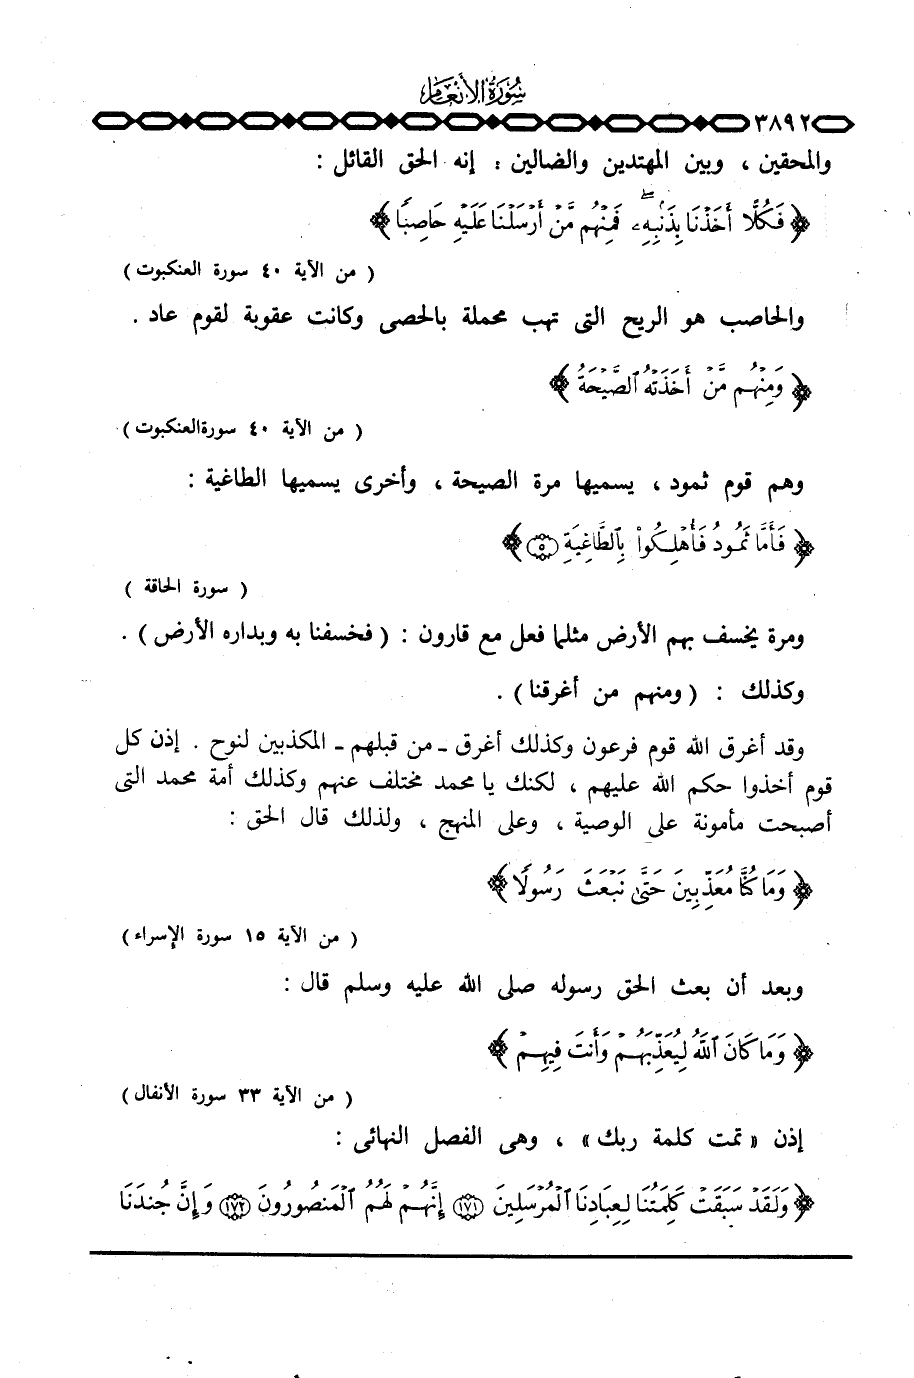 سُورَةُ الأَنْعَام
٣٨٩٢
والمحقين ، وبين المهتدين والضالين ؛ إنه الحق القائل :
﴿ فَكُلًّا أَخَذْنَا بِذَنۢبِهِۦۖ فَمِنْهُم مَّنْ أَرْسَلْنَا عَلَيْهِ حَاصِبًا ﴾
( من الآية ٤٠ سورة العنكبوت )
والحاصب هو الريح التى تهب محملة بالحصى وكانت عقوبة لقوم عاد .
﴿ وَمِنْهُم مَّنْ أَخَذَتْهُ ٱلصَّيْحَةُ ﴾
( من الآية ٤٠ سورة العنكبوت )
وهم قوم ثمود ، يسميها مرة الصيحة ، وأخرى يسميها الطاغية :
﴿ فَأَمَّا ثَمُودُ فَأُهْلِكُوا۟ بِٱلطَّاغِيَةِ ٥ ﴾
( سورة الحاقة )
ومرة يخسف بهم الأرض مثلما فعل مع قارون : ( فخسفنا به وبداره الأرض ) .
وكذلك : ( ومنهم من أغرقنا ) .
وقد أغرق الله قوم فرعون وكذلك أغرق ـ من قبلهم ـ المكذبين لنوح . إذن كل
قوم أخذوا حكم الله عليهم ، لكنك يا محمد مختلف عنهم وكذلك أمة محمد التى
أصبحت مأمونة على الوصية ، وعلى المنهج ، ولذلك قال الحق :
﴿ وَمَا كُنَّا مُعَذِّبِينَ حَتَّىٰ نَبْعَثَ رَسُولًا ﴾
( من الآية ١٥ سورة الإسراء )
وبعد أن بعث الحق رسوله صلى الله عليه وسلم قال :
﴿ وَمَا كَانَ ٱللَّهُ لِيُعَذِّبَهُمْ وَأَنتَ فِيهِمْ ﴾
( من الآية ٣٣ سورة الأنفال )
إذن « تمت كلمة ربك » ، وهى الفصل النهائى :
﴿ وَلَقَدْ سَبَقَتْ كَلِمَتُنَا لِعِبَادِنَا ٱلْمُرْسَلِينَ ١٧١ إِنَّهُمْ لَهُمُ ٱلْمَنصُورُونَ ١٧٢ وَإِنَّ جُندَنَا